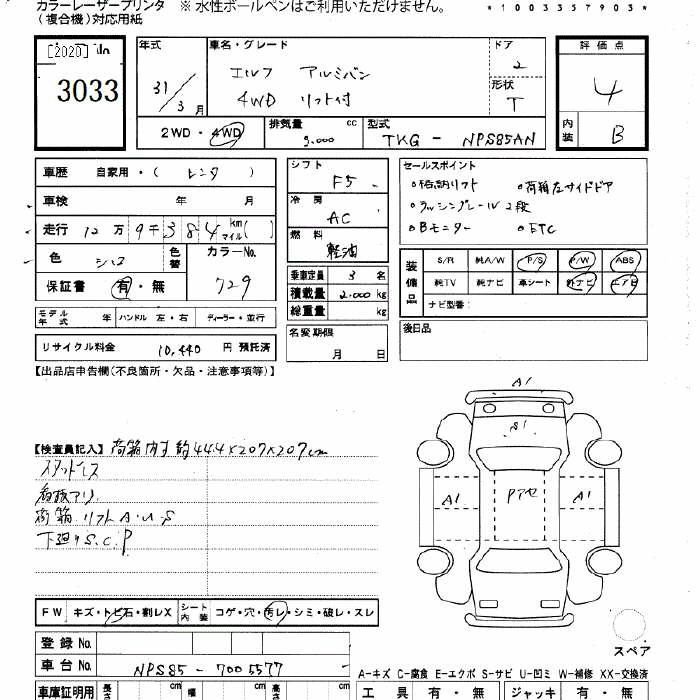 カラーレーザープリンタ ※ 水性ボールペンはご利用いただけません。
(複合機)対応用紙
*1003357903*
[2020]
3033
年式 31/3月
車名・グレード
エルフ アルミバン
4WD リフト付
ドア 2
形状 T
評価点 4
内装 B
2WD・4WD
排気量 3.000 cc
型式 TKG - NPS85AN
車歴 自家用・( レンタ )
車検 年 月
走行 12万9千384 km マイル( )
色 シロ 色替 カラーNo. 729
保証書 有・無
モデル年式 年 ハンドル 左・右 ディーラー・並行
リサイクル料金 10,440 円 預託済
シフト F5
冷房 AC
燃料 軽油
乗車定員 3 名
積載量 2.000 kg
総重量 kg
名変期限 月 日
セールスポイント
○格納リフト ○荷箱左サイドドア
○ラッシングレール2段
○Bモニター ○ETC
装備品
S/R 純A/W P/S P/W ABS
純TV 純ナビ 革シート 外ナビ エアB
ナビ型番:
後日品
【出品店申告欄(不良箇所・欠品・注意事項等)】
【検査員記入】荷箱内寸約444×207×207cm
スタッドレス
看板アリ
荷箱 リフトA・U・S
下廻りS.C.P
A1
S1
A1
Pアセ
A1
スペア
FW キズ・トビ石・割レX シート内装 コゲ・穴・汚レ・シミ・破レ・スレ
登録No.
車台No. NPS85 - 7005577
A-キズ C-腐食 E-エクボ S-サビ U-凹ミ W-補修 XX-交換済
車庫証明用 長さ cm 幅 cm 高さ cm
工具 有・無 ジャッキ 有・無